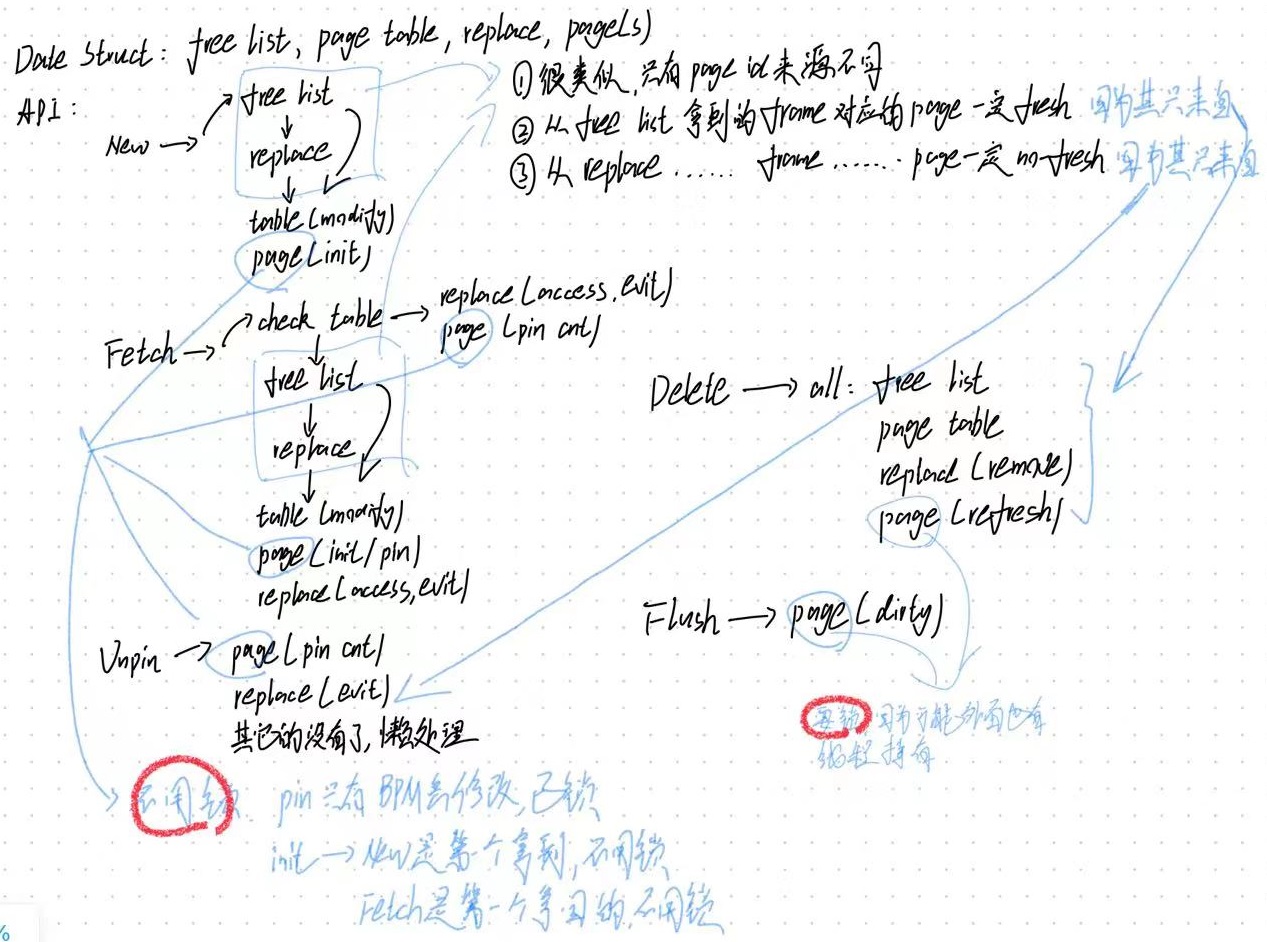 Date Struct: free list, page table, replace, page(s)
API:
New → free list
replace
table(modify)
page(init)
① 很类似,只有page id来源不同
② 从 free list 拿到的frame对应的page一定fresh 因为其只来自
③ 从 replace ...... frame ....... page一定no-fresh 因为其只来自
Fetch → check table → replace(access, evit)
page (pin cnt)
free list
replace
table (modify)
page(init/pin)
replace(access,evit)
Unpin → page(pin cnt)
replace(evit)
其它的没有了,懒处理
Delete → all: free list
page table
replace (remove)
page (refresh)
Flush → page(dirty)
要锁 因为可能外面也有
线程持有
不用锁: pin只有BPM会修改,已锁
init → New是第一个拿到,不用锁
Fetch是第一个拿回的,不用锁